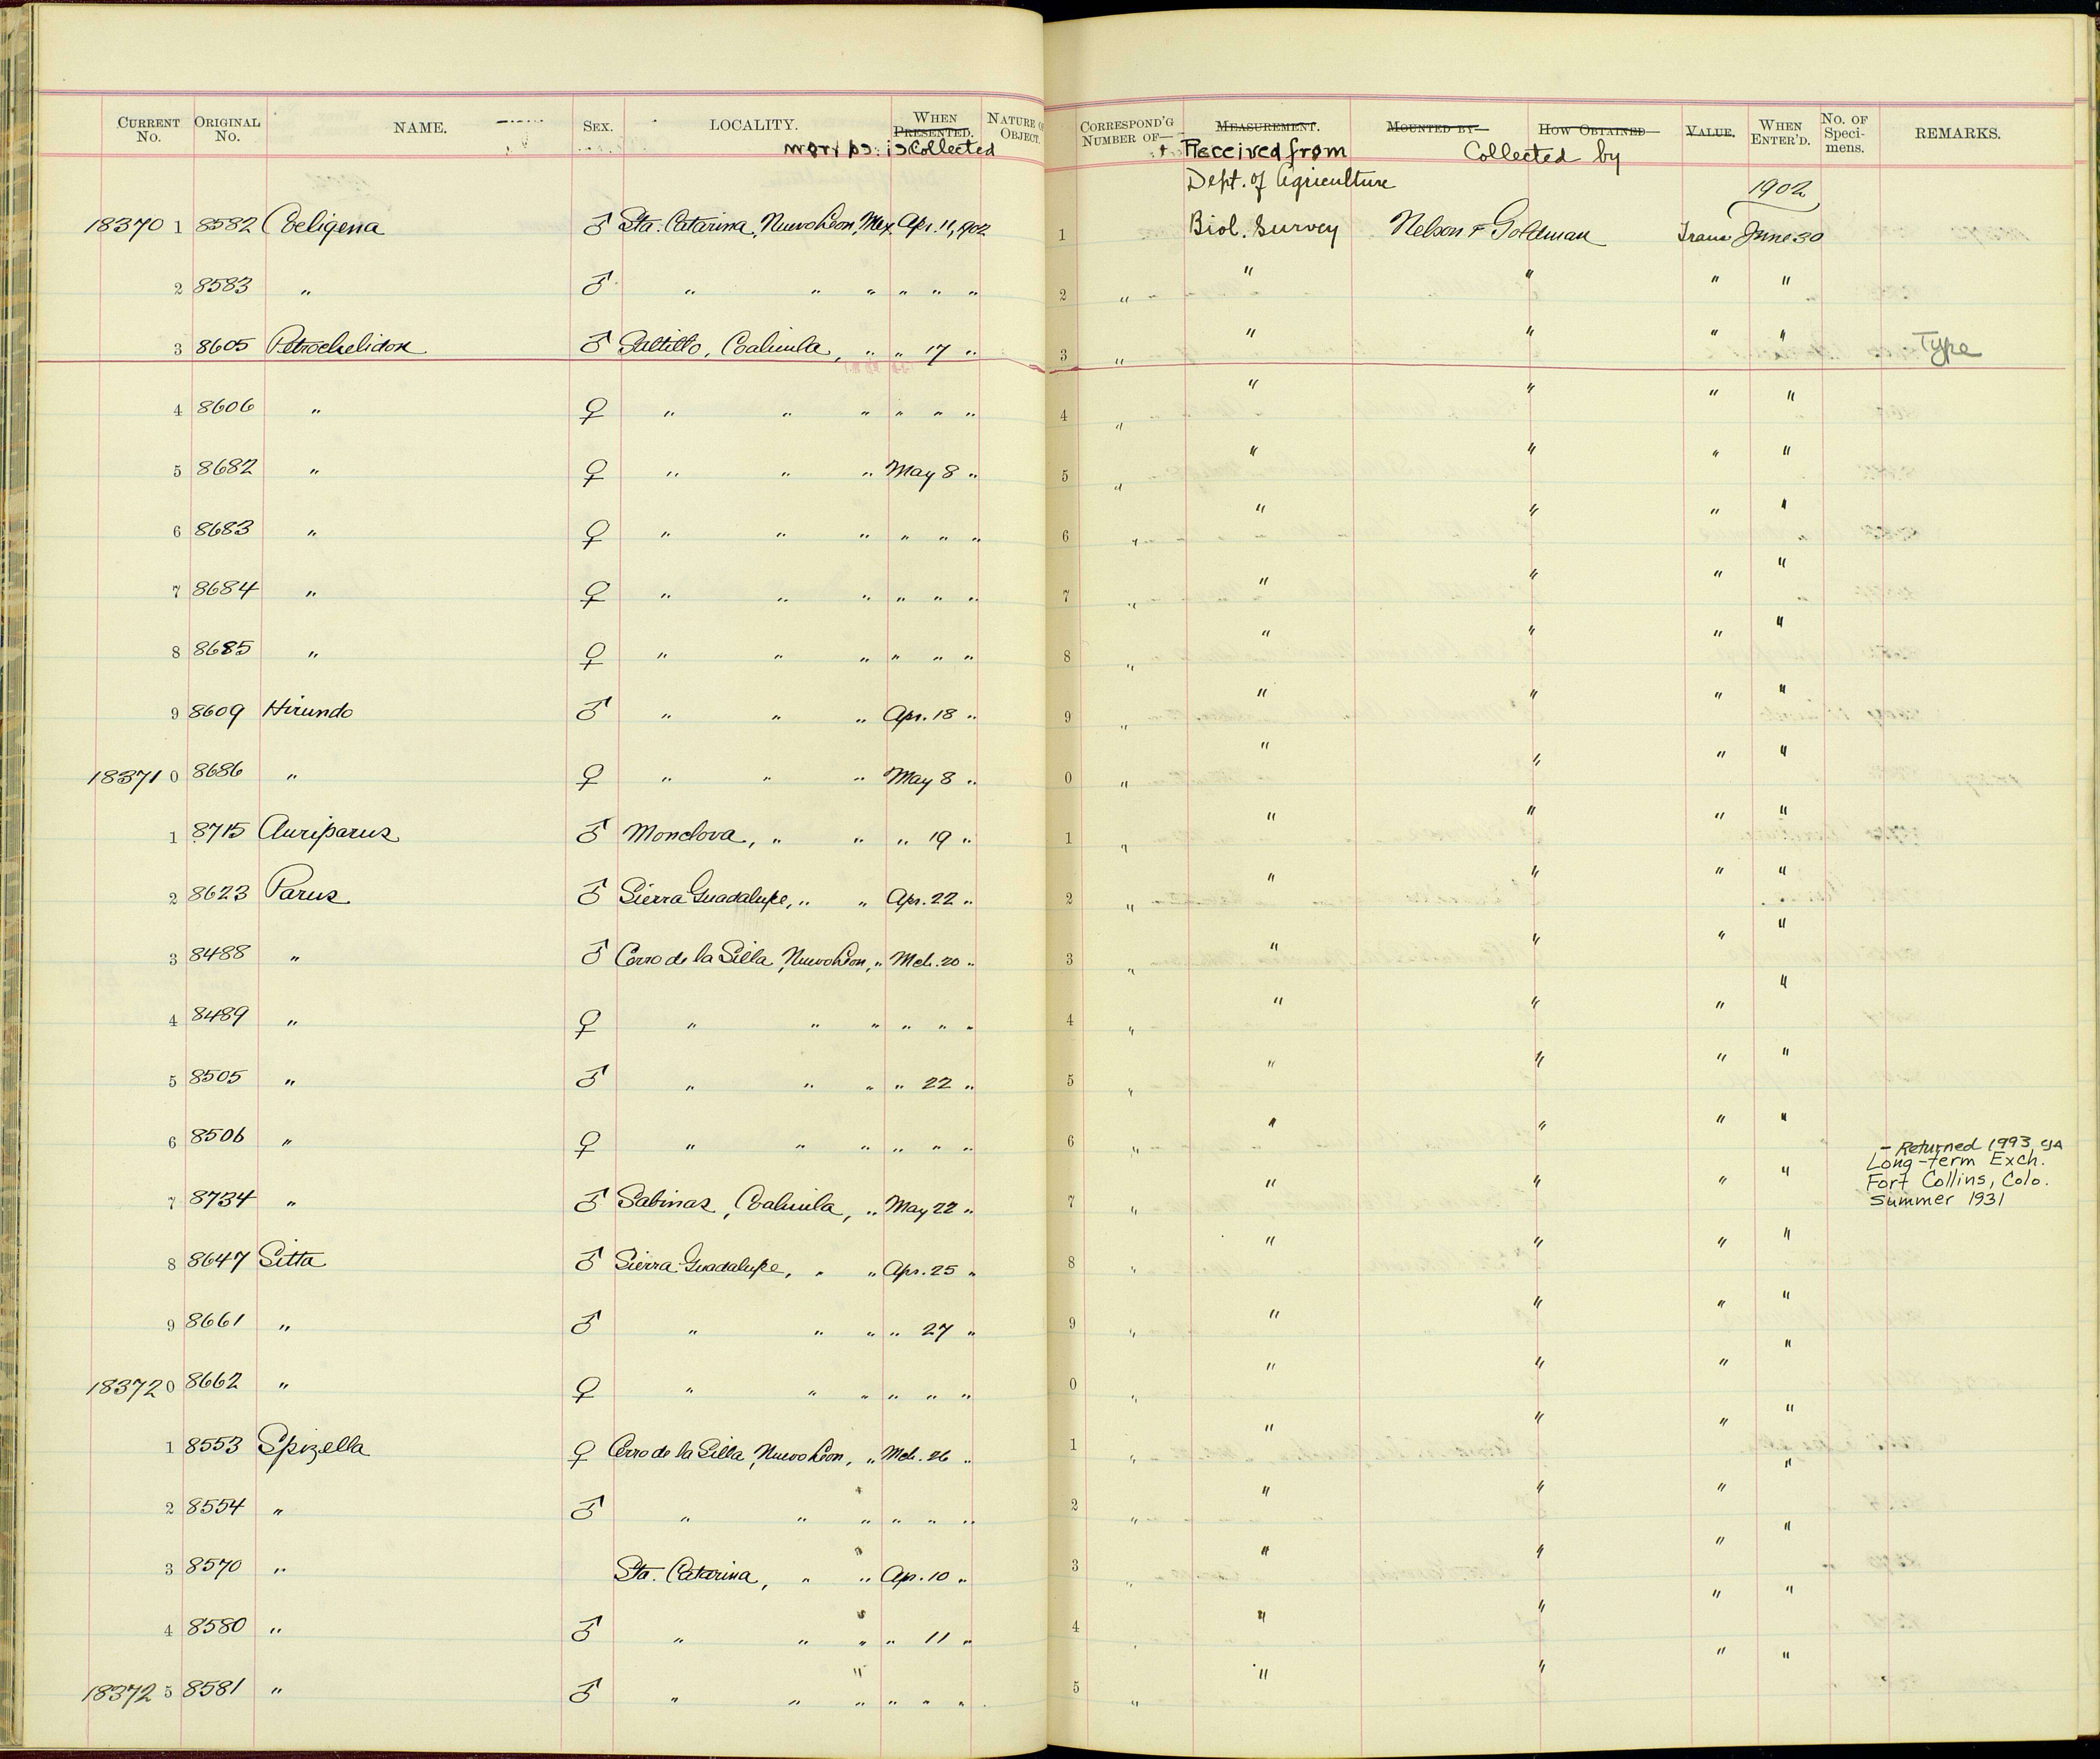 CURRENT No. ORIGINAL No. NAME. SEX. LOCALITY. WHEN PRESENTED. Collected NATURE OF OBJECT. CORRESPOND'G NUMBER OF— MEASUREMENT. Received from MOUNTED BY— HOW OBTAINED— Collected by VALUE. WHEN ENTER'D. No. OF Speci- mens. REMARKS.
Dept. of Agriculture 1902
183701 8582 Celigena ♂ Sta. Catarina, Nuevo Leon, Mex. Apr. 11, 1902 1 Biol. Survey Nelson & Goldman Trans June 30
2 8583 " ♂ " " " " " " 2 " " " " "
3 8605 Petrochelidon ♂ Saltillo, Coahuila, " " 17 " 3 " " " " " Type
4 8606 " ♀ " " " " " " 4 " " " " "
5 8682 " ♀ " " " May 8 " 5 " " " " "
6 8683 " ♀ " " " " " " 6 " " " " "
7 8684 " ♀ " " " " " " 7 " " " " "
8 8685 " ♀ " " " " " " 8 " " " " "
9 8609 Hirundo ♂ " " " Apr. 18 " 9 " " " " "
183710 8686 " ♀ " " " May 8 " 0 " " " " "
1 8715 Auriparus ♂ Monclova, " " " 19 " 1 " " " " "
2 8623 Parus ♂ Sierra Guadalupe, " " Apr. 22 " 2 " " " " "
3 8488 " ♂ Cerro de la Silla, Nuevo Leon, " Mch. 20 " 3 " " " " "
4 8489 " ♀ " " " " " " 4 " " " " "
5 8505 " ♂ " " " " 22 " 5 " " " " "
6 8506 " ♀ " " " " " " 6 " " " " "
7 8734 " ♂ Sabinas, Coahuila, " May 22 " 7 " " " " " – Returned 1993
Long-term Exch.
Fort Collins, Colo.
Summer 1931
8 8647 Sitta ♂ Sierra Guadalupe, " " Apr. 25 " 8 " " " " "
9 8661 " ♂ " " " " 27 " 9 " " " " "
183720 8662 " ♀ " " " " " " 0 " " " " "
1 8553 Spizella ♀ Cerro de la Silla, Nuevo Leon, " Mch. 26 " 1 " " " " "
2 8554 " ♂ " " " " " " 2 " " " " "
3 8570 " Sta. Catarina, " " Ap. 10 " 3 " " " " "
4 8580 " ♂ " " " " 11 " 4 " " " " "
183725 8581 " ♂ " " " " " " 5 " " " " "